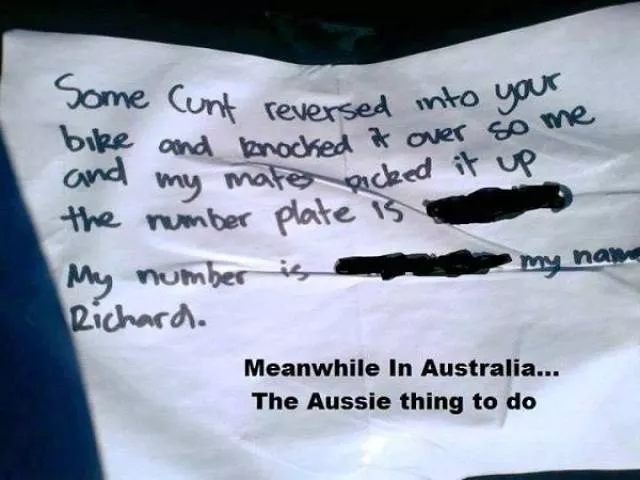 Some Cunt reversed into your
bike and knocked it over so me
and my mates picked it up
the number plate is
My number is my name
Richard.
Meanwhile In Australia...
The Aussie thing to do